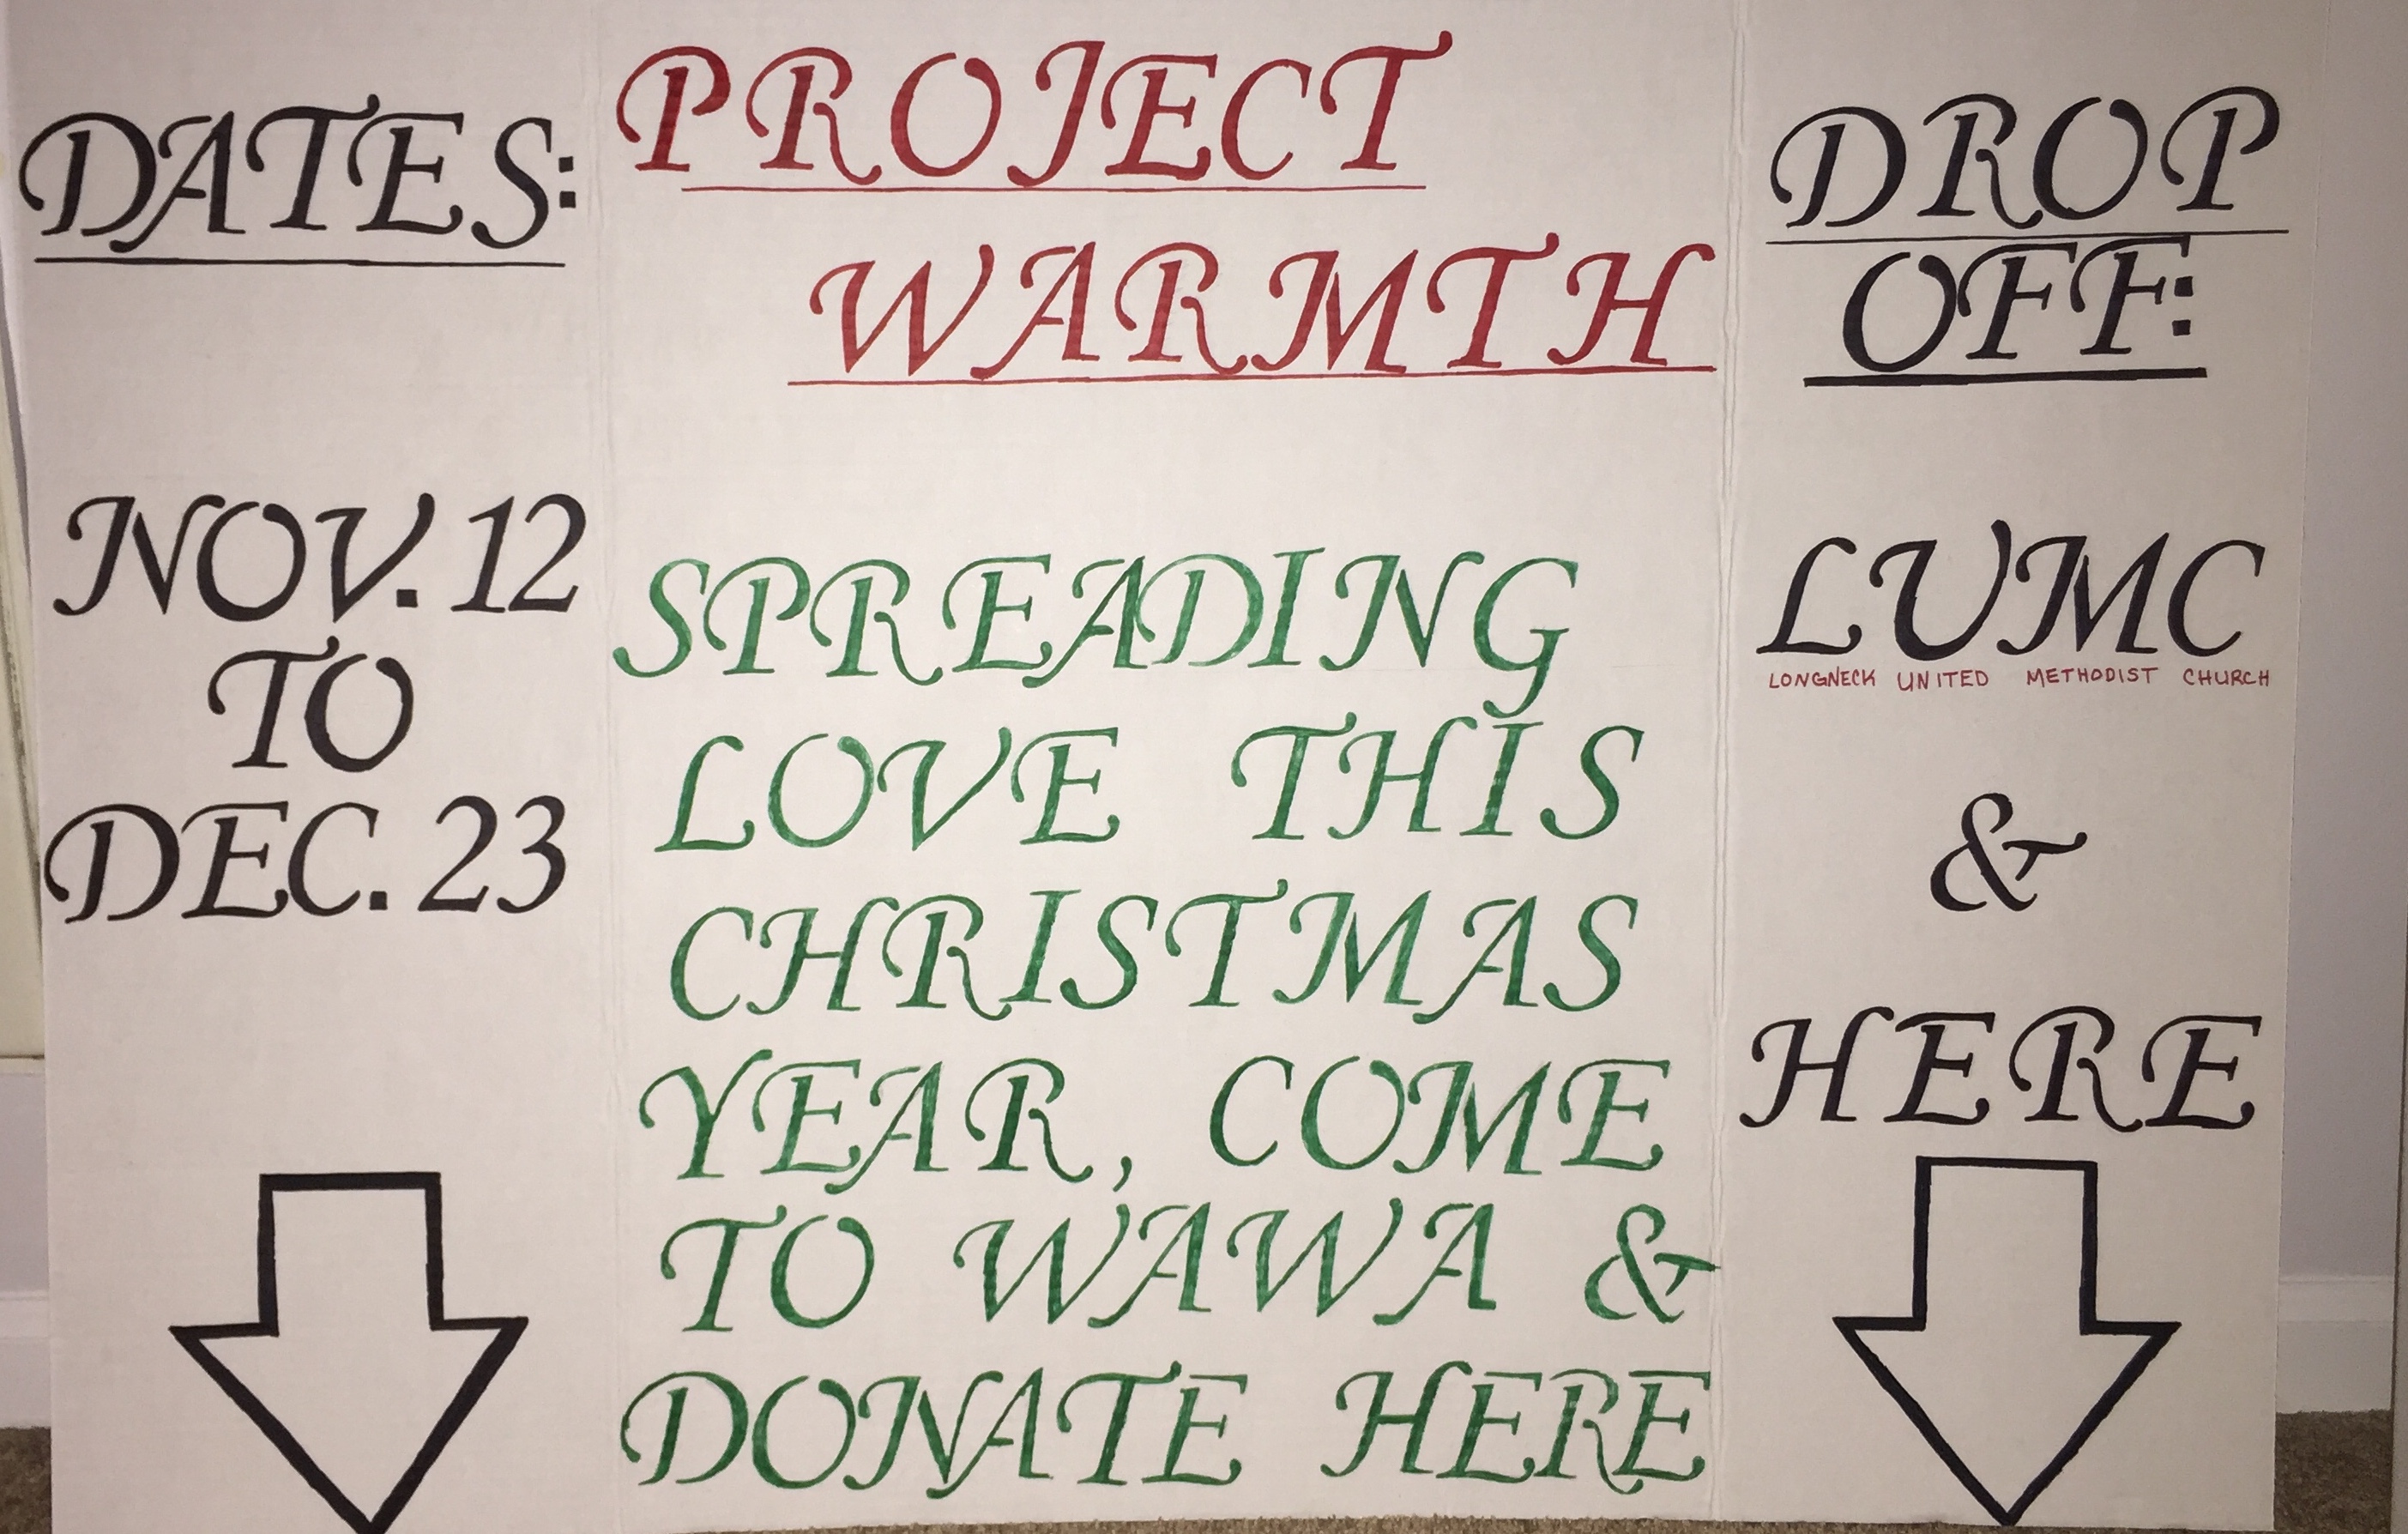 DATES:
NOV. 12
TO
DEC. 23
PROJECT
WARMTH
SPREADING
LOVE THIS
CHRISTMAS
YEAR, COME
TO WAWA &
DONATE HERE
DROP
OFF:
LUMC
LONGNECK UNITED METHODIST CHURCH
&
HERE